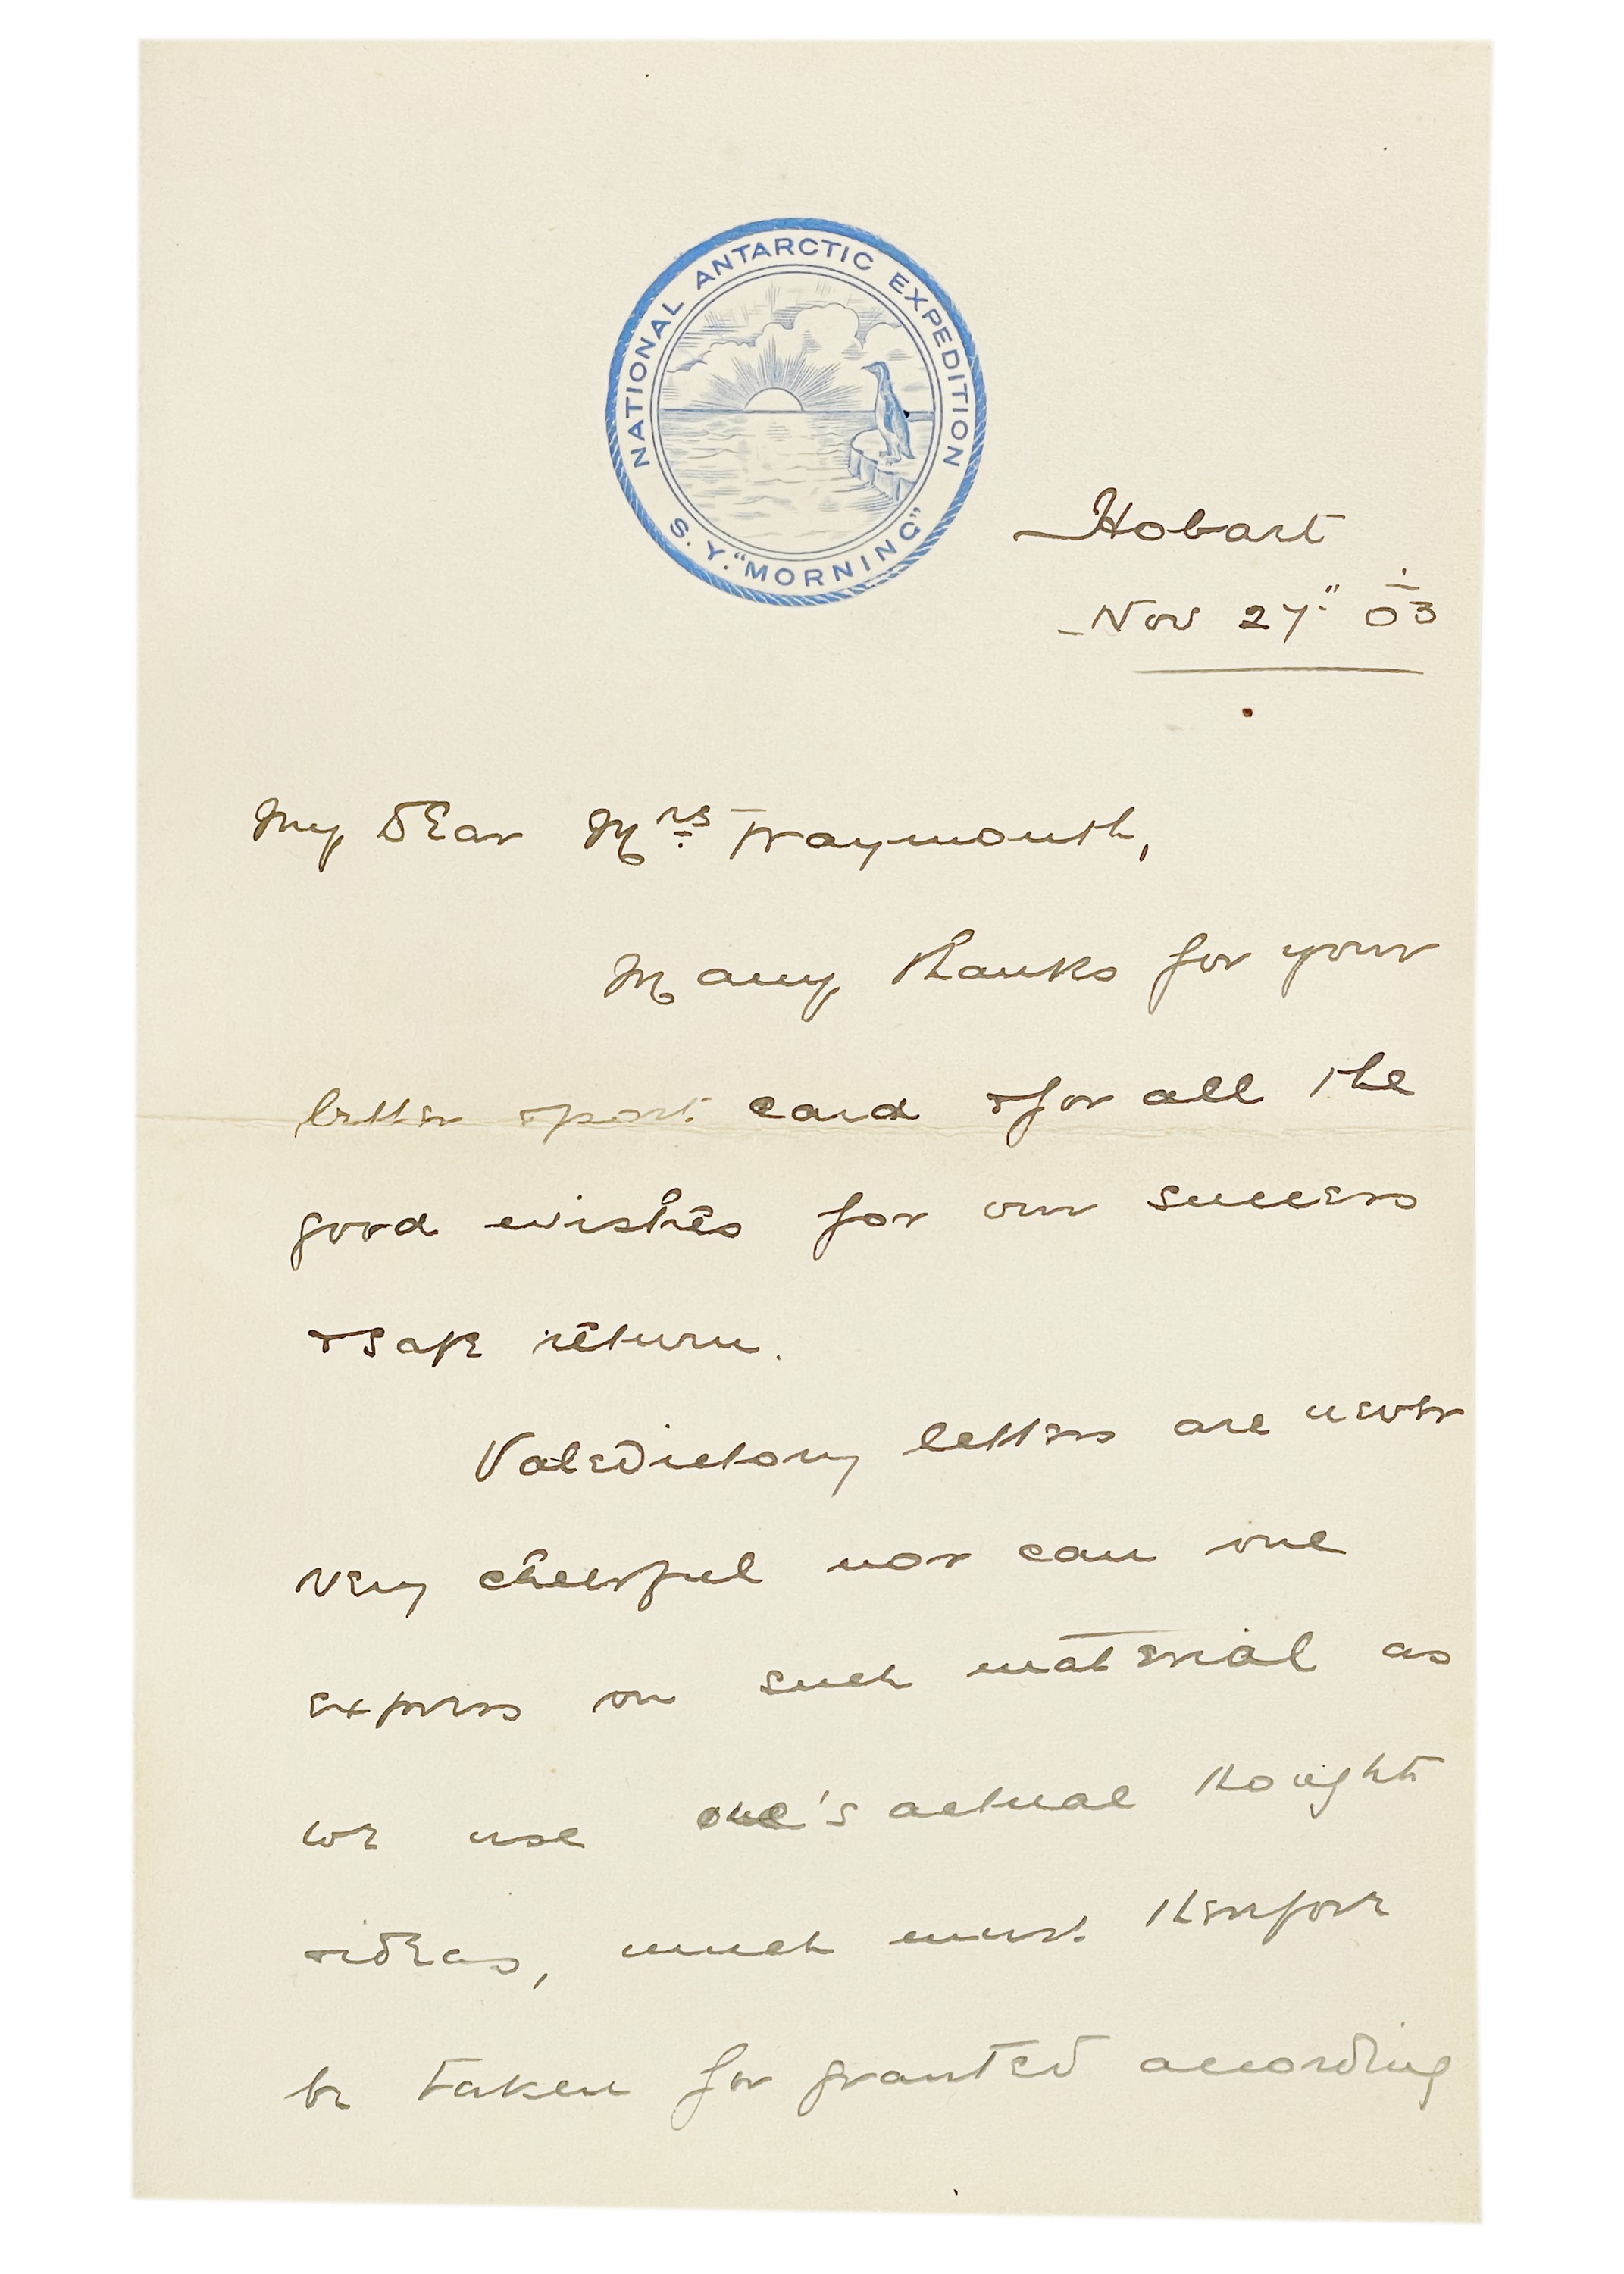 NATIONAL ANTARCTIC EXPEDITION
S.Y. "MORNING"
Hobart
Nov 27" 03
My Dear Mrs Traymouth,
Many thanks for your
letter & post card & for all the
good wishes for our success
& safe return.
Valedictory letters are never
very cheerful nor can one
express on such material as
we use one's actual thought
& ideas, much must therefore
be taken for granted according